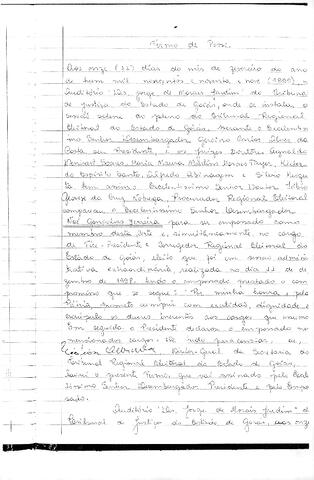 Termo de Posse
Aos onze (11) dias do mês de fevereiro do ano
de hum mil novecentos e noventa e nove (1999), no
Auditório "Des. Jorge de Morais Jardim" do Tribunal
de Justiça do Estado de Goiás, onde se instalou a
sessão solene do pleno do Tribunal Regional
Eleitoral do Estado de Goiás, perante o Excelentís-
simo Senhor Desembargador
Costa seu Presidente, e os Juízes Doutores
Maria
do Espírito Santo, Alfredo Abinagem e
Excelentíssimo Senhor Doutor
George da Cruz Nóbrega, Procurador Regional Eleitoral
compareceu o Excelentíssimo Senhor Desembargador
Gonçalves Teixeira para ser empossado como
membro desta Corte e, simultaneamente, no cargo
de Vice-Presidente e Corregedor Regional Eleitoral do
Estado de Goiás, eleito que foi em sessão adminis-
trativa extraordinária, realizada no dia 11 de de-
zembro de 1998, tendo o empossado prestado o com-
promisso que se segue: "Por minha honra e pela
Pátria, prometo cumprir com exatidão, dignidade e
os deveres inerentes aos cargos que assumo
Em seguida o Presidente declarou o empossado nos
mencionados cargos. De tudo para constar, eu,
Diretor-Geral da Secretaria do
Tribunal Regional Eleitoral do Estado de Goiás,
lavrei o presente Termo, que vai assinado pelo Exce-
lentíssimo Senhor Desembargador Presidente e pelo Empos-
sado.
Auditório "Des. Jorge de Morais Jardim" do
Tribunal de Justiça do Estado de Goiás, aos onze